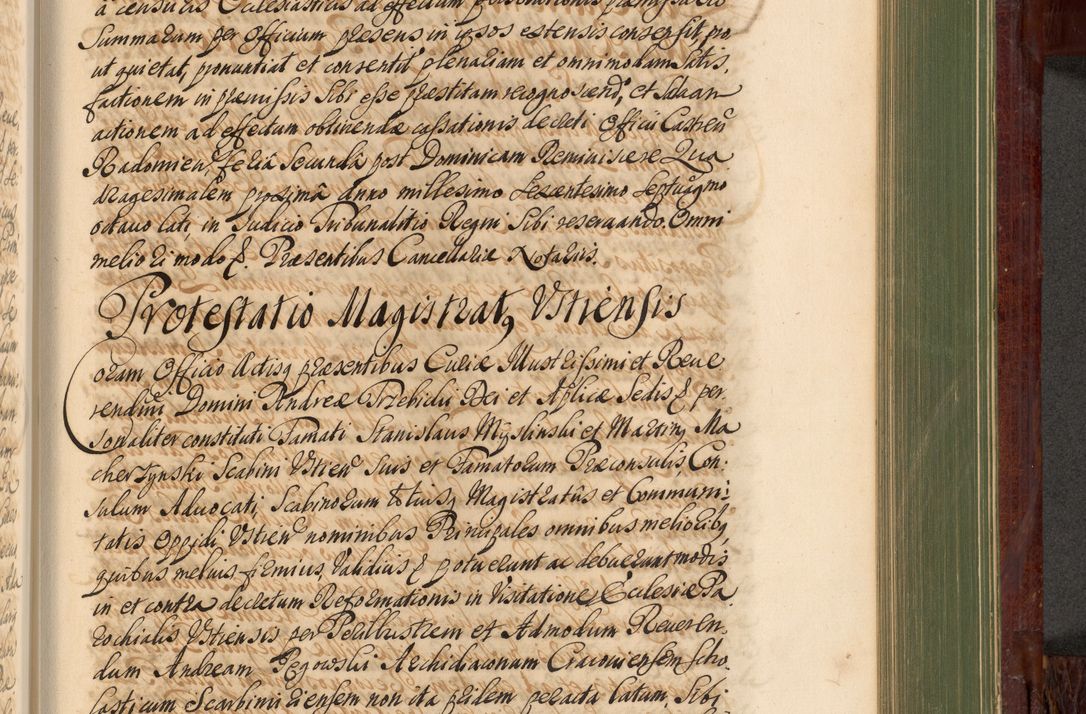 a censuris Ecclesiasticis ad effectum
Summarum per Officium præsens in ipsos extensis consensit, pro
ut quietat, pronuntiat et consentit plenariam et omnimodam Satis,
factionem in præmissis Sibi esse præstitam recognoscend, et Salvam
actionem ad effectum obtinendæ cassationis decreti Officii Castren
Radomien, feria Secunda post Dominicam Reminiscere Qua
dragesimalem proxima Anno millesimo Sexcentesimo Septuagmo
octavo lati, in Judicio Tribunalitio Regni Sibi reservando. Omni
meliori modo &. Præsentibus Cancellariæ Notariis.
Protestatio Magistratq Ustiensis
Coram Officio Actisq præsentibus Curiæ Illustrissimi et Reve
rendmi Domini Andreæ Trzebicki Dei et Aplicæ Sedis & per
sonaliter constituti Famati Stanislaus Myslinski et Martinq Ma
cherzynski Scabini Ustien Suis et Famatorum Præconsulis Con:
sulum Advocati, Scabinorum totiusq Magistratus et Communi:
tatis Oppidi Ustien nominibus Principales omnibus melioribq
quibus melius firmius, Validius & potuerunt ac debuerunt modis
in et contra decretum Reformationis in Visitatione Ecclesiæ Pa
rochialis Ustiensis per Perillustrem et Admodum Reveren,
dum Andream Pegowski Archidiaconum Cracoviensem Scho
lasticum Scarbimiriensem non ita pridem peracta latum, Sibi